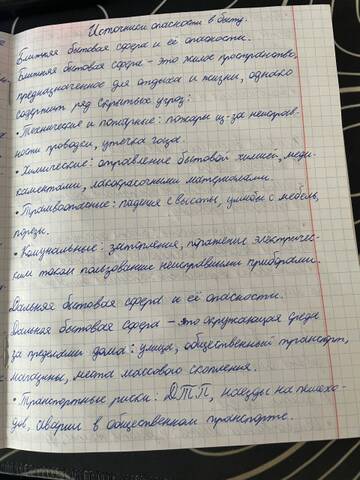 Источники опасности в быту.
Ближняя бытовая сфера и её опасности.
Ближняя бытовая сфера - это жилое пространство,
предназначенное для отдыха и жизни, однако
содержит ряд скрытых угроз:
• Технические и пожарные: пожары из-за неисправ-
ности проводки, утечка газа.
• Химические: отравление бытовой химией, меди-
каментами, лакокрасочными материалами.
• Травмоопасные: падения с высоты, ушибы с мебель,
порезы.
• Комунальные: затопления, поражение электричес-
ким током пользование неисправными приборами.
Дальняя бытовая сфера и её опасности.
Дальняя бытовая сфера - это окружающая среда
за пределами дома: улица, общественный транспорт,
магазины, места массового скопления.
• Транспортные риски: ДТП, наезды на пешехо-
дов, аварии в общественном транспорте.